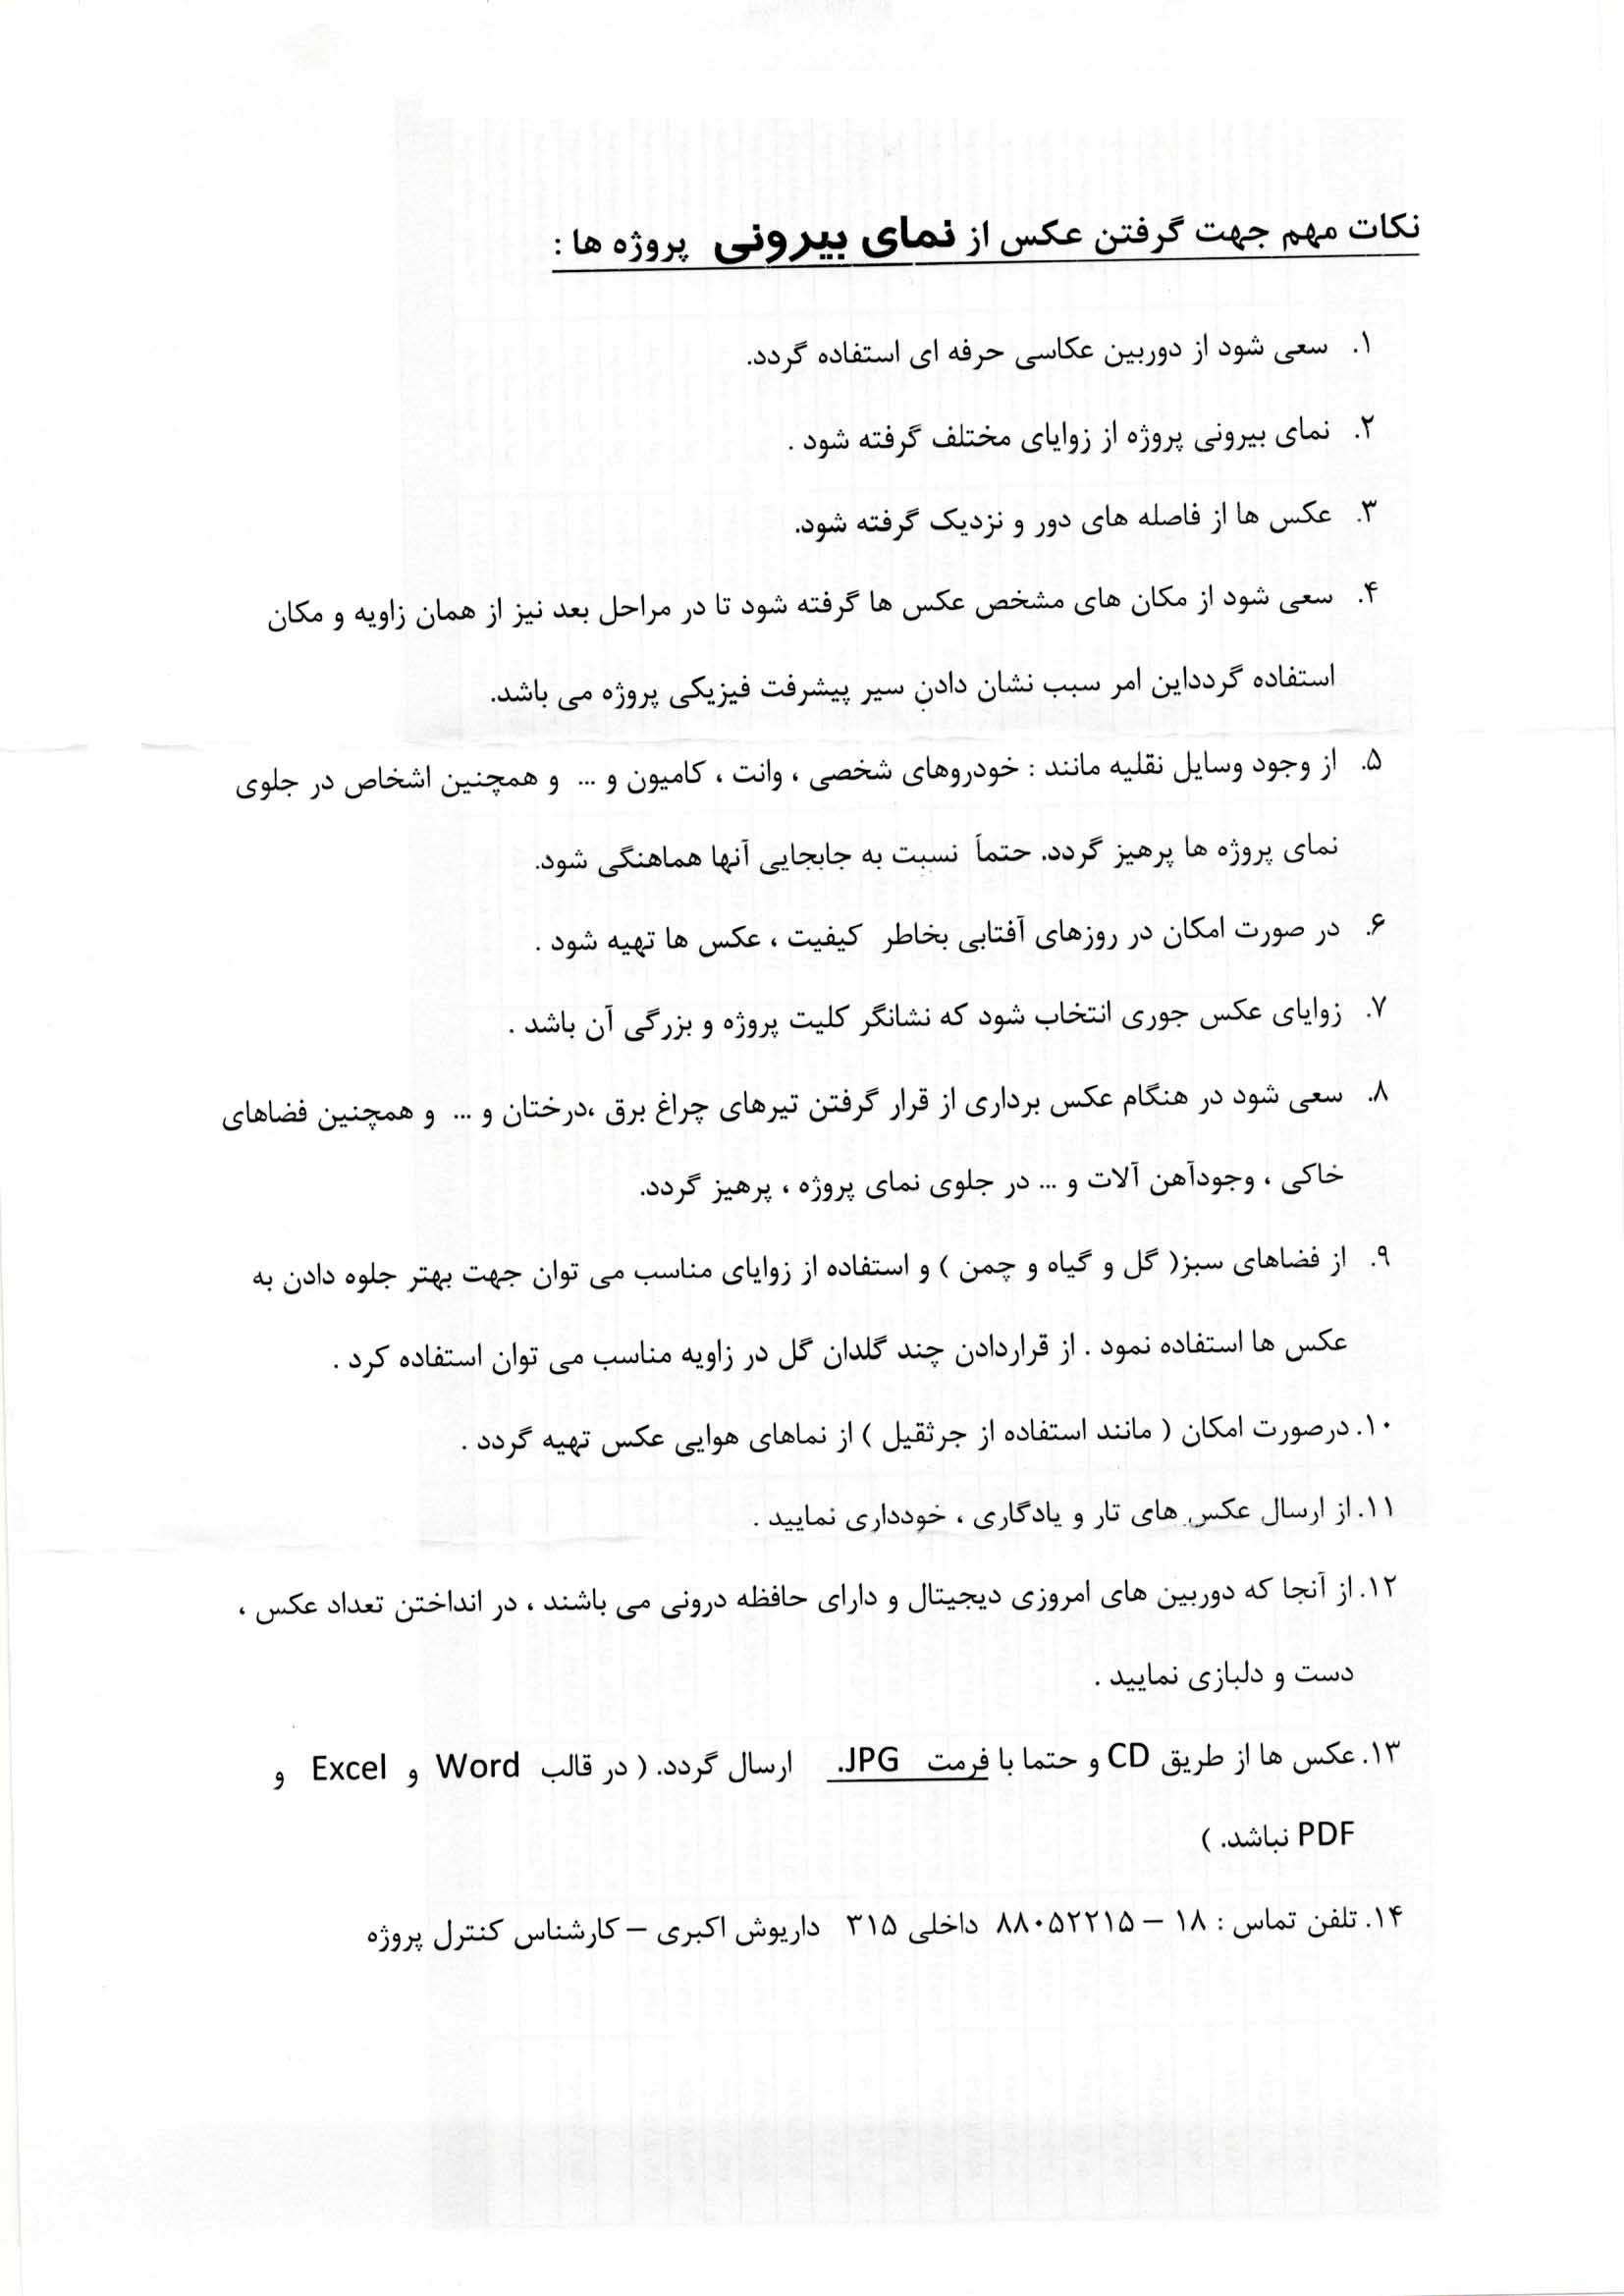 نکات مهم جهت گرفتن عکس از نمای بیرونی پروژه ها :
۱. سعی شود از دوربین عکاسی حرفه ای استفاده گردد.
۲. نمای بیرونی پروژه از زوایای مختلف گرفته شود .
۳. عکس ها از فاصله های دور و نزدیک گرفته شود.
۴. سعی شود از مکان های مشخص عکس ها گرفته شود تا در مراحل بعد نیز از همان زاویه و مکان
استفاده گردداین امر سبب نشان دادن سیر پیشرفت فیزیکی پروژه می باشد.
۵. از وجود وسایل نقلیه مانند : خودروهای شخصی ، وانت ، کامیون و ... و همچنین اشخاص در جلوی
نمای پروژه ها پرهیز گردد. حتماً نسبت به جابجایی آنها هماهنگی شود.
۶. در صورت امکان در روزهای آفتابی بخاطر کیفیت ، عکس ها تهیه شود .
۷. زوایای عکس جوری انتخاب شود که نشانگر کلیت پروژه و بزرگی آن باشد .
۸. سعی شود در هنگام عکس برداری از قرار گرفتن تیرهای چراغ برق ،درختان و ... و همچنین فضاهای
خاکی ، وجودآهن آلات و ... در جلوی نمای پروژه ، پرهیز گردد.
۹. از فضاهای سبز( گل و گیاه و چمن ) و استفاده از زوایای مناسب می توان جهت بهتر جلوه دادن به
عکس ها استفاده نمود . از قراردادن چند گلدان گل در زاویه مناسب می توان استفاده کرد .
۱۰. درصورت امکان ( مانند استفاده از جرثقیل ) از نماهای هوایی عکس تهیه گردد .
۱۱. از ارسال عکس های تار و یادگاری ، خودداری نمایید .
۱۲. از آنجا که دوربین های امروزی دیجیتال و دارای حافظه درونی می باشند ، در انداختن تعداد عکس ،
دست و دلبازی نمایید .
۱۳. عکس ها از طریق CD و حتما با فرمت JPG. ارسال گردد. ( در قالب Word و Excel و
PDF نباشد. )
۱۴. تلفن تماس : ۱۸ – ۸۸۰۵۲۲۱۵ داخلی ۳۱۵ داریوش اکبری – کارشناس کنترل پروژه